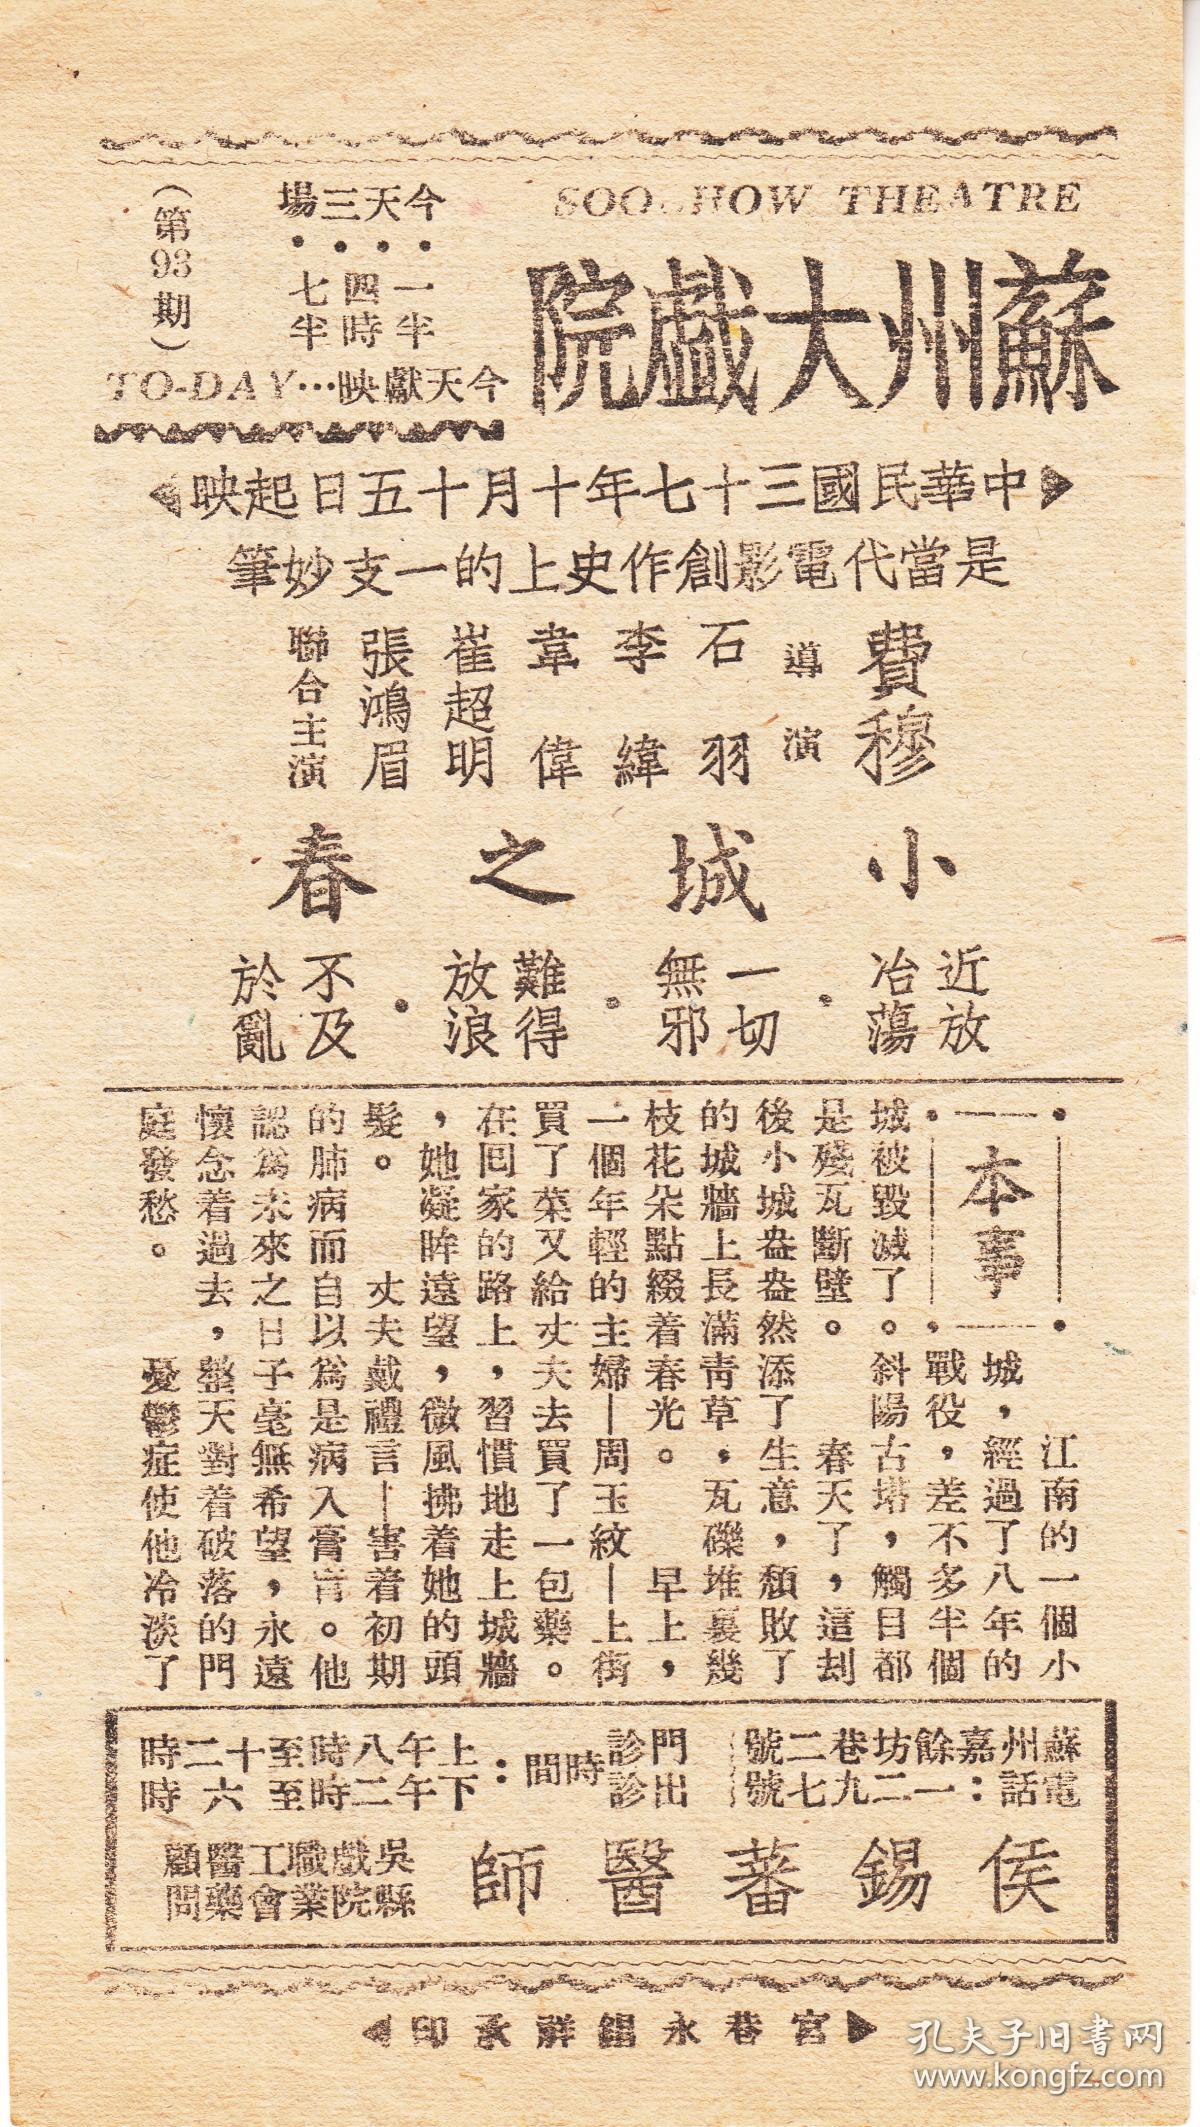 SOOCHOW THEATRE
蘇州大戲院
今天三場
一半
四時
七半
(第93期)
今天獻映…TO-DAY
中華民國三十七年十月十五日起映
是當代電影創作史上的一支妙筆
費穆
導演
石羽
李緯
韋偉
崔超明
張鴻眉
聯合主演
小城之春
近放冶蕩・一切無邪・難得放浪・不及於亂
本事
江南的一個小
城，經過了八年的
戰役，差不多半個
城被毀滅了。斜陽古塔，觸目都
是殘瓦斷壁。　春天了，這刦
後小城盎盎然添了生意，頹敗了
的城牆上長滿青草，瓦礫堆裏幾
枝花朵點綴着春光。　早上，
一個年輕的主婦—周玉紋—上街
買了菜又給丈夫去買了一包藥。
在回家的路上，習慣地走上城牆
，她凝眸遠望，微風拂着她的頭
髮。　丈夫戴禮言—害着初期
的肺病而自以爲是病入膏肓。他
認爲未來之日子毫無希望，永遠
懷念着過去，整天對着破落的門
庭發愁。　憂鬱症使他冷淡了
蘇州嘉餘坊巷二號
電話：一二九七號
門診
出診
時間：
上午八時至十二時
下午二時至六時
侯錫蕃醫師
吳縣戲院職業工會醫藥顧問
宮巷永錩祥承印
孔夫子旧书网
www.kongfz.com